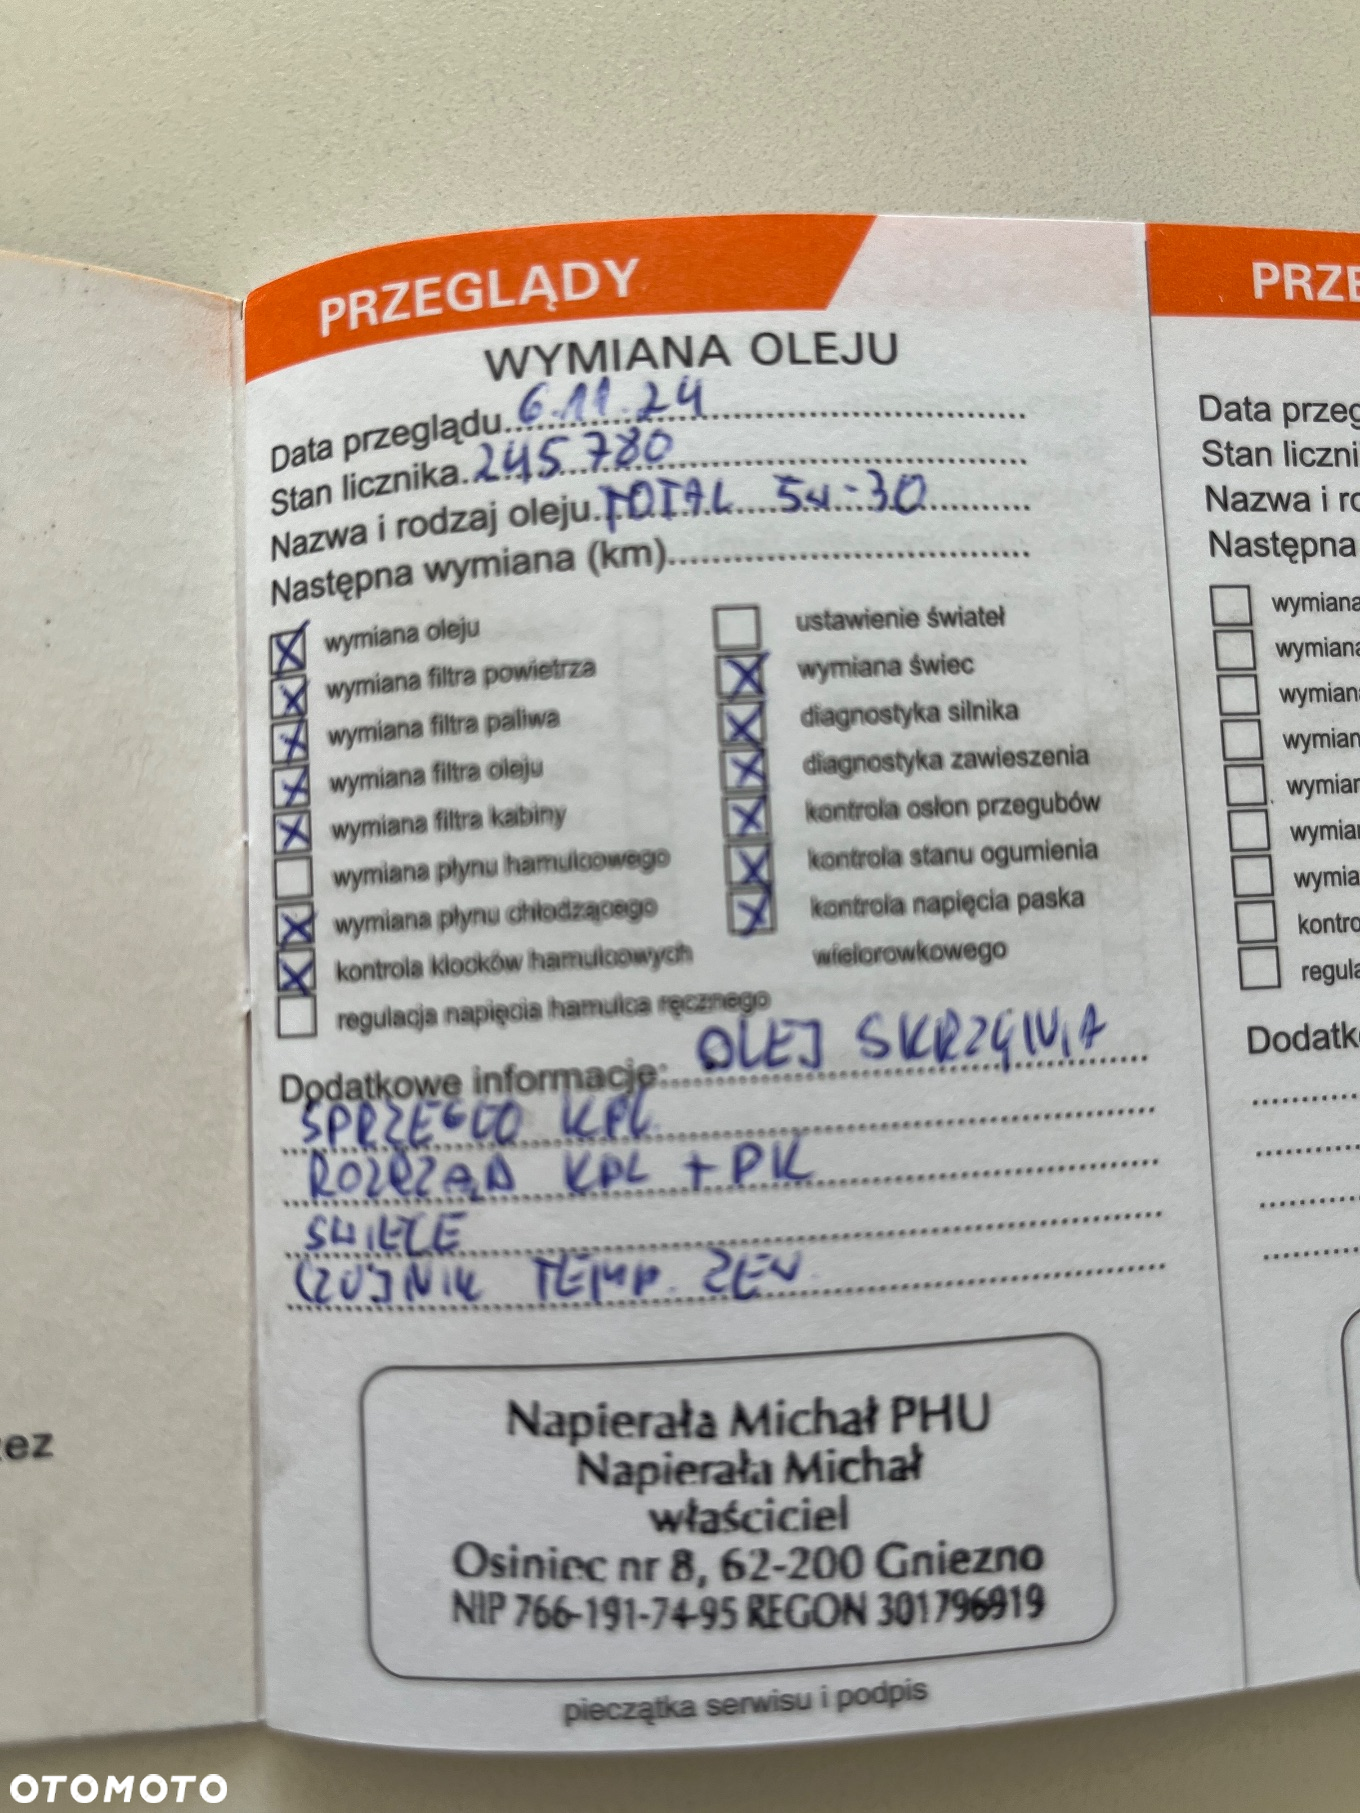 PRZEGLĄDY
WYMIANA OLEJU
Data przeglądu 6.11.24
Stan licznika 245 780
Nazwa i rodzaj oleju TOTAL 5w-30
Następna wymiana (km)
wymiana oleju
wymiana filtra powietrza
wymiana filtra paliwa
wymiana filtra oleju
wymiana filtra kabiny
wymiana płynu hamulcowego
wymiana płynu chłodzącego
kontrola klocków hamulcowych
regulacja napięcia hamulca ręcznego
ustawienie świateł
wymiana świec
diagnostyka silnika
diagnostyka zawieszenia
kontrola osłon przegubów
kontrola stanu ogumienia
kontrola napięcia paska
wielorowkowego
Dodatkowe informacje: OLEJ SKRZYNIA
SPRZĘGŁO KPL
ROZRZĄD KPL + PK
ŚWIECE
CZUJNIK TEMP. ZEW
Napierała Michał PHU
Napierała Michał
właściciel
Osiniec nr 8, 62-200 Gniezno
NIP 766-191-74-95 REGON 301796919
pieczątka serwisu i podpis
PRZE
Data przeg
Stan liczni
Nazwa i ro
Następna
wymiana
wymiana
wymiana
wymian
wymian
wymian
wymia
kontro
regula
Dodatk
ez
OTOMOTO